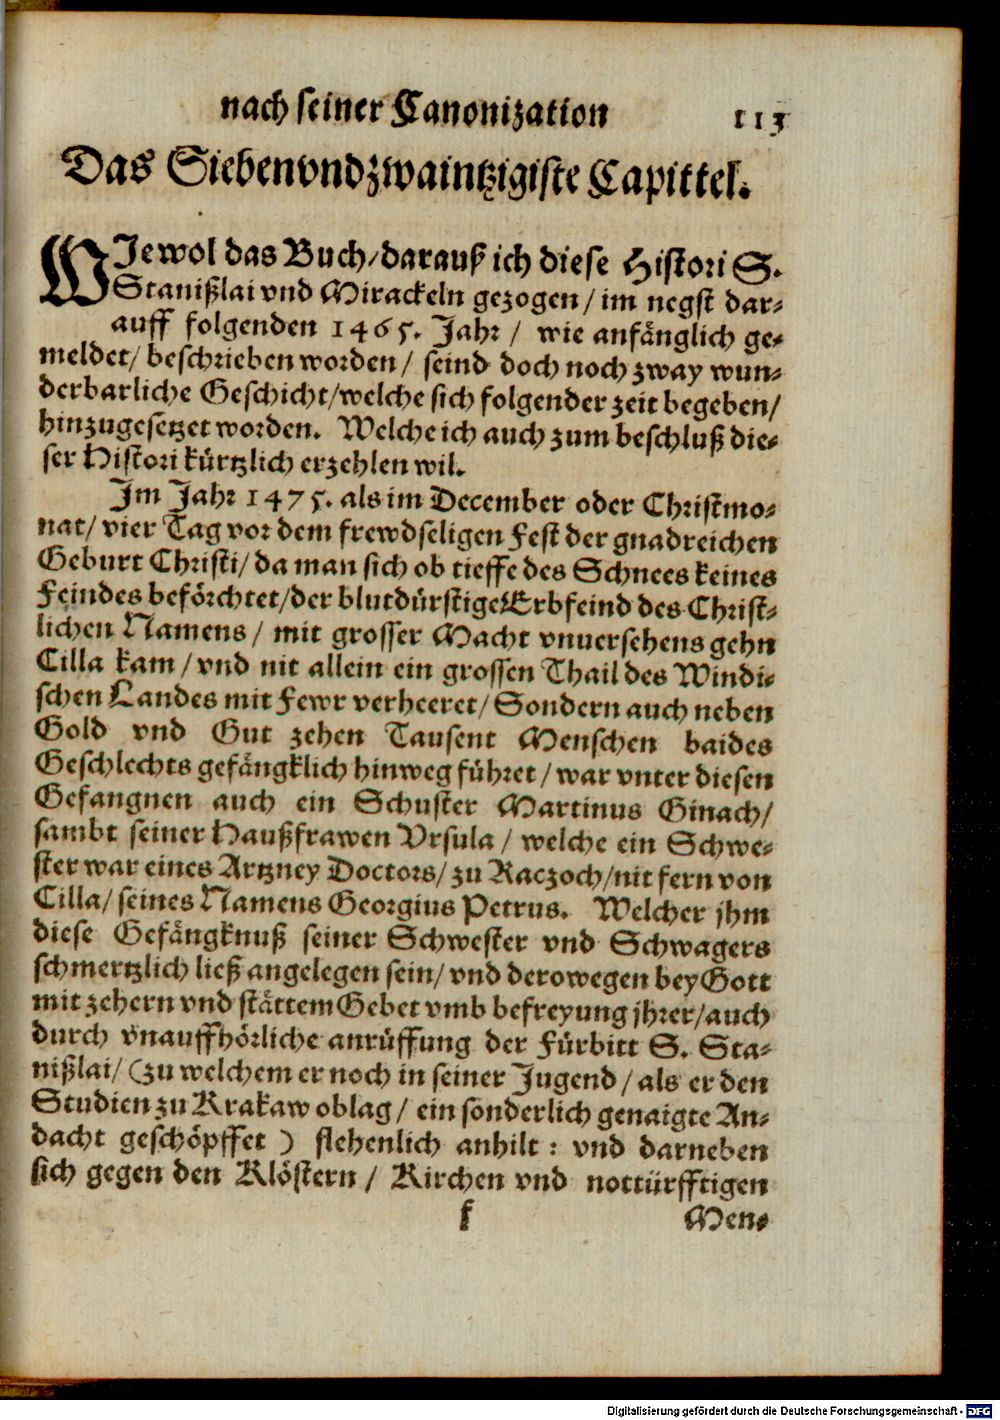 nach seiner Canonization 113
Das Siebenvndzwaintzigiste Capittel.
WJewol das Buch/darauß ich diese Histori S.
Stanißlai vnd Mirackeln gezogen/im negst dar-
auff folgenden 1465. Jahr/ wie anfänglich ge-
meldet/beschrieben worden/ seind doch noch zway wun-
derbarliche Geschicht/welche sich folgender zeit begeben/
hinzugesetzet worden. Welche ich auch zum beschluß die-
ser Histori kürtzlich erzehlen wil.
Jm Jahr 1475. als im December oder Christmo-
nat/vier Tag vor dem frewdseligen Fest der gnadreichen
Geburt Christi/da man sich ob tieffe des Schnees keines
Feindes beförchtet/der blutdürstige Erbfeind des Christ-
lichen Namens/ mit grosser Macht vnuersehens gehn
Cilla kam/vnd nit allein ein grossen Thail des Windi-
schen Landes mit Fewr verheeret/Sondern auch neben
Gold vnd Gut zehen Tausent Menschen baides
Geschlechts gefängklich hinweg führet/war vnter diesen
Gefangnen auch ein Schuster Martinus Ginach/
sambt seiner Haußfrawen Vrsula/ welche ein Schwe-
ster war eines Artzney Doctors/zu Raczoch/nit fern von
Cilla/seines Namens Georgius Petrus. Welcher jhm
diese Gefängknuß seiner Schwester vnd Schwagers
schmertzlich ließ angelegen sein/vnd derowegen bey Gott
mit zehern vnd stättem Gebet vmb befreyung jhrer/auch
durch vnauffhörliche anrüffung der Fürbitt S. Sta-
nißlai/(zu welchem er noch in seiner Jugend/als er den
Studien zu Krakaw oblag/ein sonderlich genaigte An-
dacht geschöpffet) flehenlich anhilt: vnd darneben
sich gegen den Klöstern/ Kirchen vnd nottürfftigen
k Men-
Digitalisierung gefördert durch die Deutsche Forschungsgemeinschaft - DFG